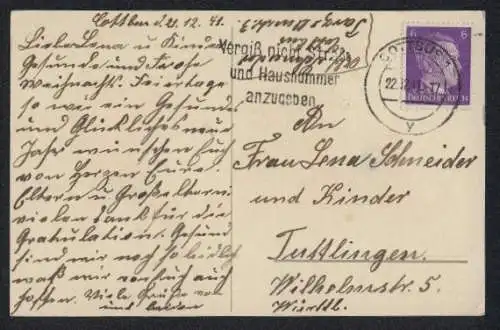 Cottbus d. 21.12.41.
Liebe Lena u Kinder
Gesunde und frohe
Weihnachts. Feiertage
so wie ein Gesundes
und Glückliches neue
Jahr wünschen Euch
von Herzen Eure
Eltern u Großeltern
vielen Dank für die
Gratulation. Gesund
sind wir noch so leidlich
was wir von Euch auch
hoffen. Viele Grüße von
uns beiden
Vergiß nicht Straße
und Hausnummer
anzugeben
COTTBUS 1
22.12.41.-17
y
6 6
DEUTSCHES REICH
An
Frau Lena Schneider
und Kinder
Tuttlingen.
Wilhelmstr. 5.
Württl.